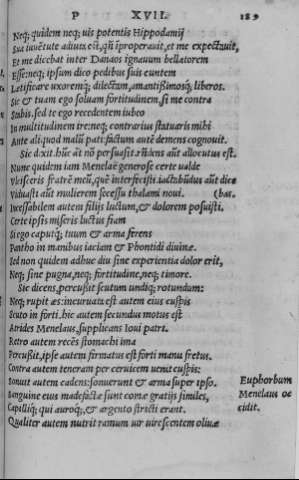 P XVII. 189
Neq; quidem neq; uis potentis Hippodamij
Sua iuuētute adiuta est, qñ īproperauit, et me expectauit,
Et me dicebat inter Danaos ignauum bellatorem
Esse: neq; ipsum dico pedibus suis euntem
Lætificare uxoremq; dilectam, amantissimosq; liberos.
Sic & tuam ego soluam fortitudinem, si me contra
Stabis. sed te ego recedentem iubeo
In multitudinem ire: neq; contrarius statuaris mihi
Ante aliquod malū pati: factum autē demens cognouit.
Sic dixit. hūc at nō persuasit. rñdens aūt allocutus est.
Nunc quidem iam Menelaë generose certe ualde
Vlcisceris fratrē meū, quē interfecisti iactabūdus aūt dicis
Viduasti aūt mulierem secessu thalami noui. (bas.
Ineffabilem autem filijs luctum, & dolorem posuisti.
Certe ipsis miseris luctus fiam
Si ego caputq; tuum & arma ferens
Pantho in manibus iaciam & Phontidi diuinæ.
Sed non quidem adhuc diu sine experientia dolor erit,
Neq; sine pugna, neq; fortitudine, neq; timore.
Sic dicens, percussit scutum undiq; rotundum:
Neq; rupit æs: incuruata est autem eius cuspis
Scuto in forti. hic autem secundus motus est
Atrides Menelaus, supplicans Ioui patri.
Retro autem recēs stomachi ima
Percussit, ipse autem firmatus est forti manu fretus.
Contra autem teneram per ceruicem uenit cuspis:
Sonuit autem cadens: sonuerunt & arma super ipso.
Sanguine eius madefactæ sunt comæ gratijs similes,
Capilliq; qui auroq;, & argento stricti erant.
Qualiter autem nutrit ramum uir uirescentem oliuæ
Euphorbum
Menelaus oc
cidit.